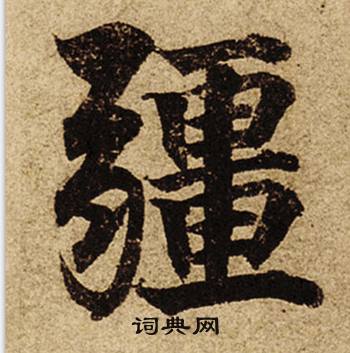 疆
词典网